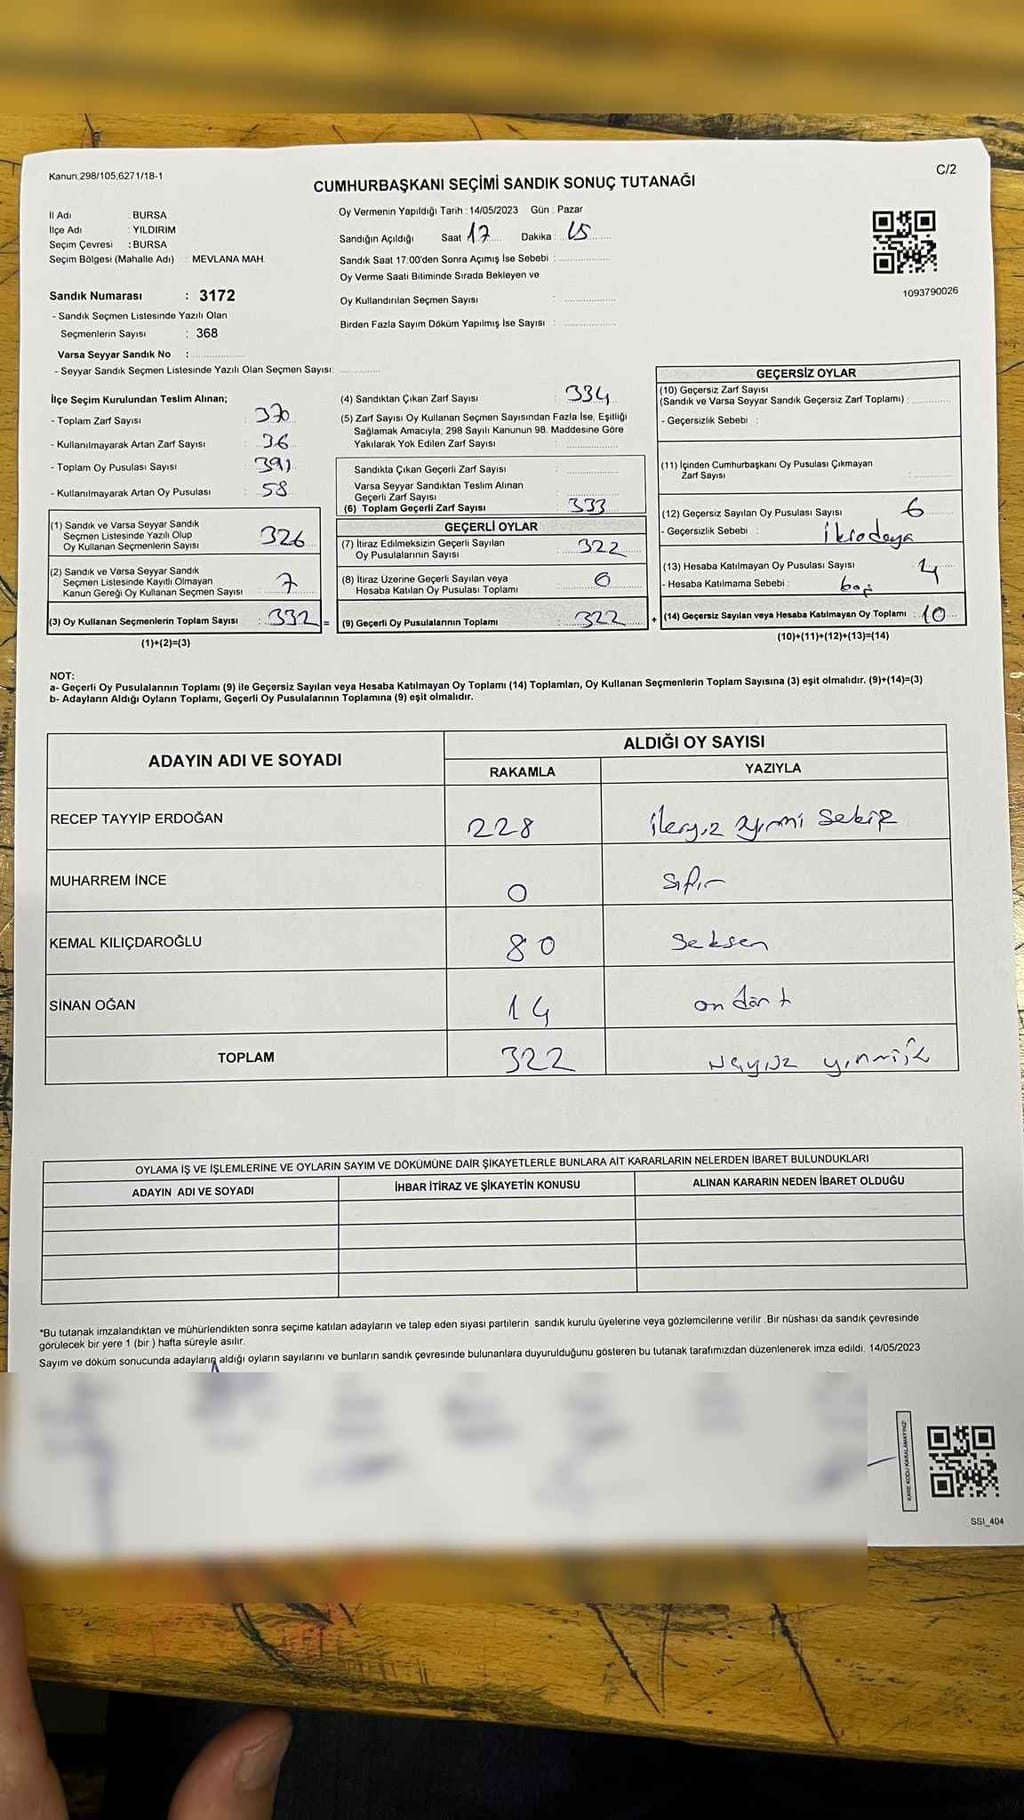 Kanun;298/105,6271/18-1
C/2
CUMHURBAŞKANI SEÇİMİ SANDIK SONUÇ TUTANAĞI
İl Adı : BURSA
İlçe Adı : YILDIRIM
Seçim Çevresi : BURSA
Seçim Bölgesi (Mahalle Adı) : MEVLANA MAH.
Sandık Numarası : 3172
- Sandık Seçmen Listesinde Yazılı Olan
Seçmenlerin Sayısı : 368
Varsa Seyyar Sandık No :
- Seyyar Sandık Seçmen Listesinde Yazılı Olan Seçmen Sayısı:
Oy Vermenin Yapıldığı Tarih : 14/05/2023 Gün : Pazar
Sandığın Açıldığı Saat 17 Dakika : 15
Sandık Saat 17:00'den Sonra Açımış İse Sebebi :
Oy Verme Saati Bitiminde Sırada Bekleyen ve
Oy Kullandırılan Seçmen Sayısı :
Birden Fazla Sayım Döküm Yapılmış İse Sayısı :
1093790026
İlçe Seçim Kurulundan Teslim Alınan;
- Toplam Zarf Sayısı : 370
- Kullanılmayarak Artan Zarf Sayısı : 36
- Toplam Oy Pusulası Sayısı : 391
- Kullanılmayarak Artan Oy Pusulası : 58
(1) Sandık ve Varsa Seyyar Sandık
Seçmen Listesinde Yazılı Olup
Oy Kullanan Seçmenlerin Sayısı : 326
(2) Sandık ve Varsa Seyyar Sandık
Seçmen Listesinde Kayıtlı Olmayan
Kanun Gereği Oy Kullanan Seçmen Sayısı : 7
(3) Oy Kullanan Seçmenlerin Toplam Sayısı : 332 =
(1)+(2)=(3)
(4) Sandıktan Çıkan Zarf Sayısı : 334
(5) Zarf Sayısı Oy Kullanan Seçmen Sayısından Fazla İse, Eşitliği
Sağlamak Amacıyla; 298 Sayılı Kanunun 98. Maddesine Göre
Yakılarak Yok Edilen Zarf Sayısı :
Sandıkta Çıkan Geçerli Zarf Sayısı :
Varsa Seyyar Sandıktan Teslim Alınan
Geçerli Zarf Sayısı :
(6) Toplam Geçerli Zarf Sayısı : 333
GEÇERLİ OYLAR
(7) İtiraz Edilmeksizin Geçerli Sayılan
Oy Pusulalarının Sayısı : 322
(8) İtiraz Üzerine Geçerli Sayılan veya
Hesaba Katılan Oy Pusulası Toplamı : 0
(9) Geçerli Oy Pusulalarının Toplamı : 322 +
GEÇERSİZ OYLAR
(10) Geçersiz Zarf Sayısı
(Sandık ve Varsa Seyyar Sandık Geçersiz Zarf Toplamı) :
- Geçersizlik Sebebi :
(11) İçinden Cumhurbaşkanı Oy Pusulası Çıkmayan
Zarf Sayısı :
(12) Geçersiz Sayılan Oy Pusulası Sayısı : 6
- Geçersizlik Sebebi :
(13) Hesaba Katılmayan Oy Pusulası Sayısı : 4
- Hesaba Katılmama Sebebi : boş
(14) Geçersiz Sayılan veya Hesaba Katılmayan Oy Toplamı : 10
(10)+(11)+(12)+(13)=(14)
NOT:
a- Geçerli Oy Pusulalarının Toplamı (9) ile Geçersiz Sayılan veya Hesaba Katılmayan Oy Toplamı (14) Toplamları, Oy Kullanan Seçmenlerin Toplam Sayısına (3) eşit olmalıdır. (9)+(14)=(3)
b- Adayların Aldığı Oyların Toplamı, Geçerli Oy Pusulalarının Toplamına (9) eşit olmalıdır.
ADAYIN ADI VE SOYADI
ALDIĞI OY SAYISI
RAKAMLA YAZIYLA
RECEP TAYYİP ERDOĞAN 228 ikiyüz yirmi sekiz
MUHARREM İNCE 0 sıfır
KEMAL KILIÇDAROĞLU 80 Seksen
SİNAN OĞAN 14 on dört
TOPLAM 322
OYLAMA İŞ VE İŞLEMLERİNE VE OYLARIN SAYIM VE DÖKÜMÜNE DAİR ŞİKAYETLERLE BUNLARA AİT KARARLARIN NELERDEN İBARET BULUNDUKLARI
ADAYIN ADI VE SOYADI İHBAR İTİRAZ VE ŞİKAYETİN KONUSU ALINAN KARARIN NEDEN İBARET OLDUĞU
*Bu tutanak imzalandıktan ve mühürlendikten sonra seçime katılan adayların ve talep eden siyasi partilerin sandık kurulu üyelerine veya gözlemcilerine verilir. Bir nüshası da sandık çevresinde
görülecek bir yere 1 (bir ) hafta süreyle asılır.
Sayım ve döküm sonucunda adayların aldığı oyların sayılarını ve bunların sandık çevresinde bulunanlara duyurulduğunu gösteren bu tutanak tarafımızdan düzenlenerek imza edildi. 14/05/2023
KARE KODU KARALAMAYINIZ!
SSI_404